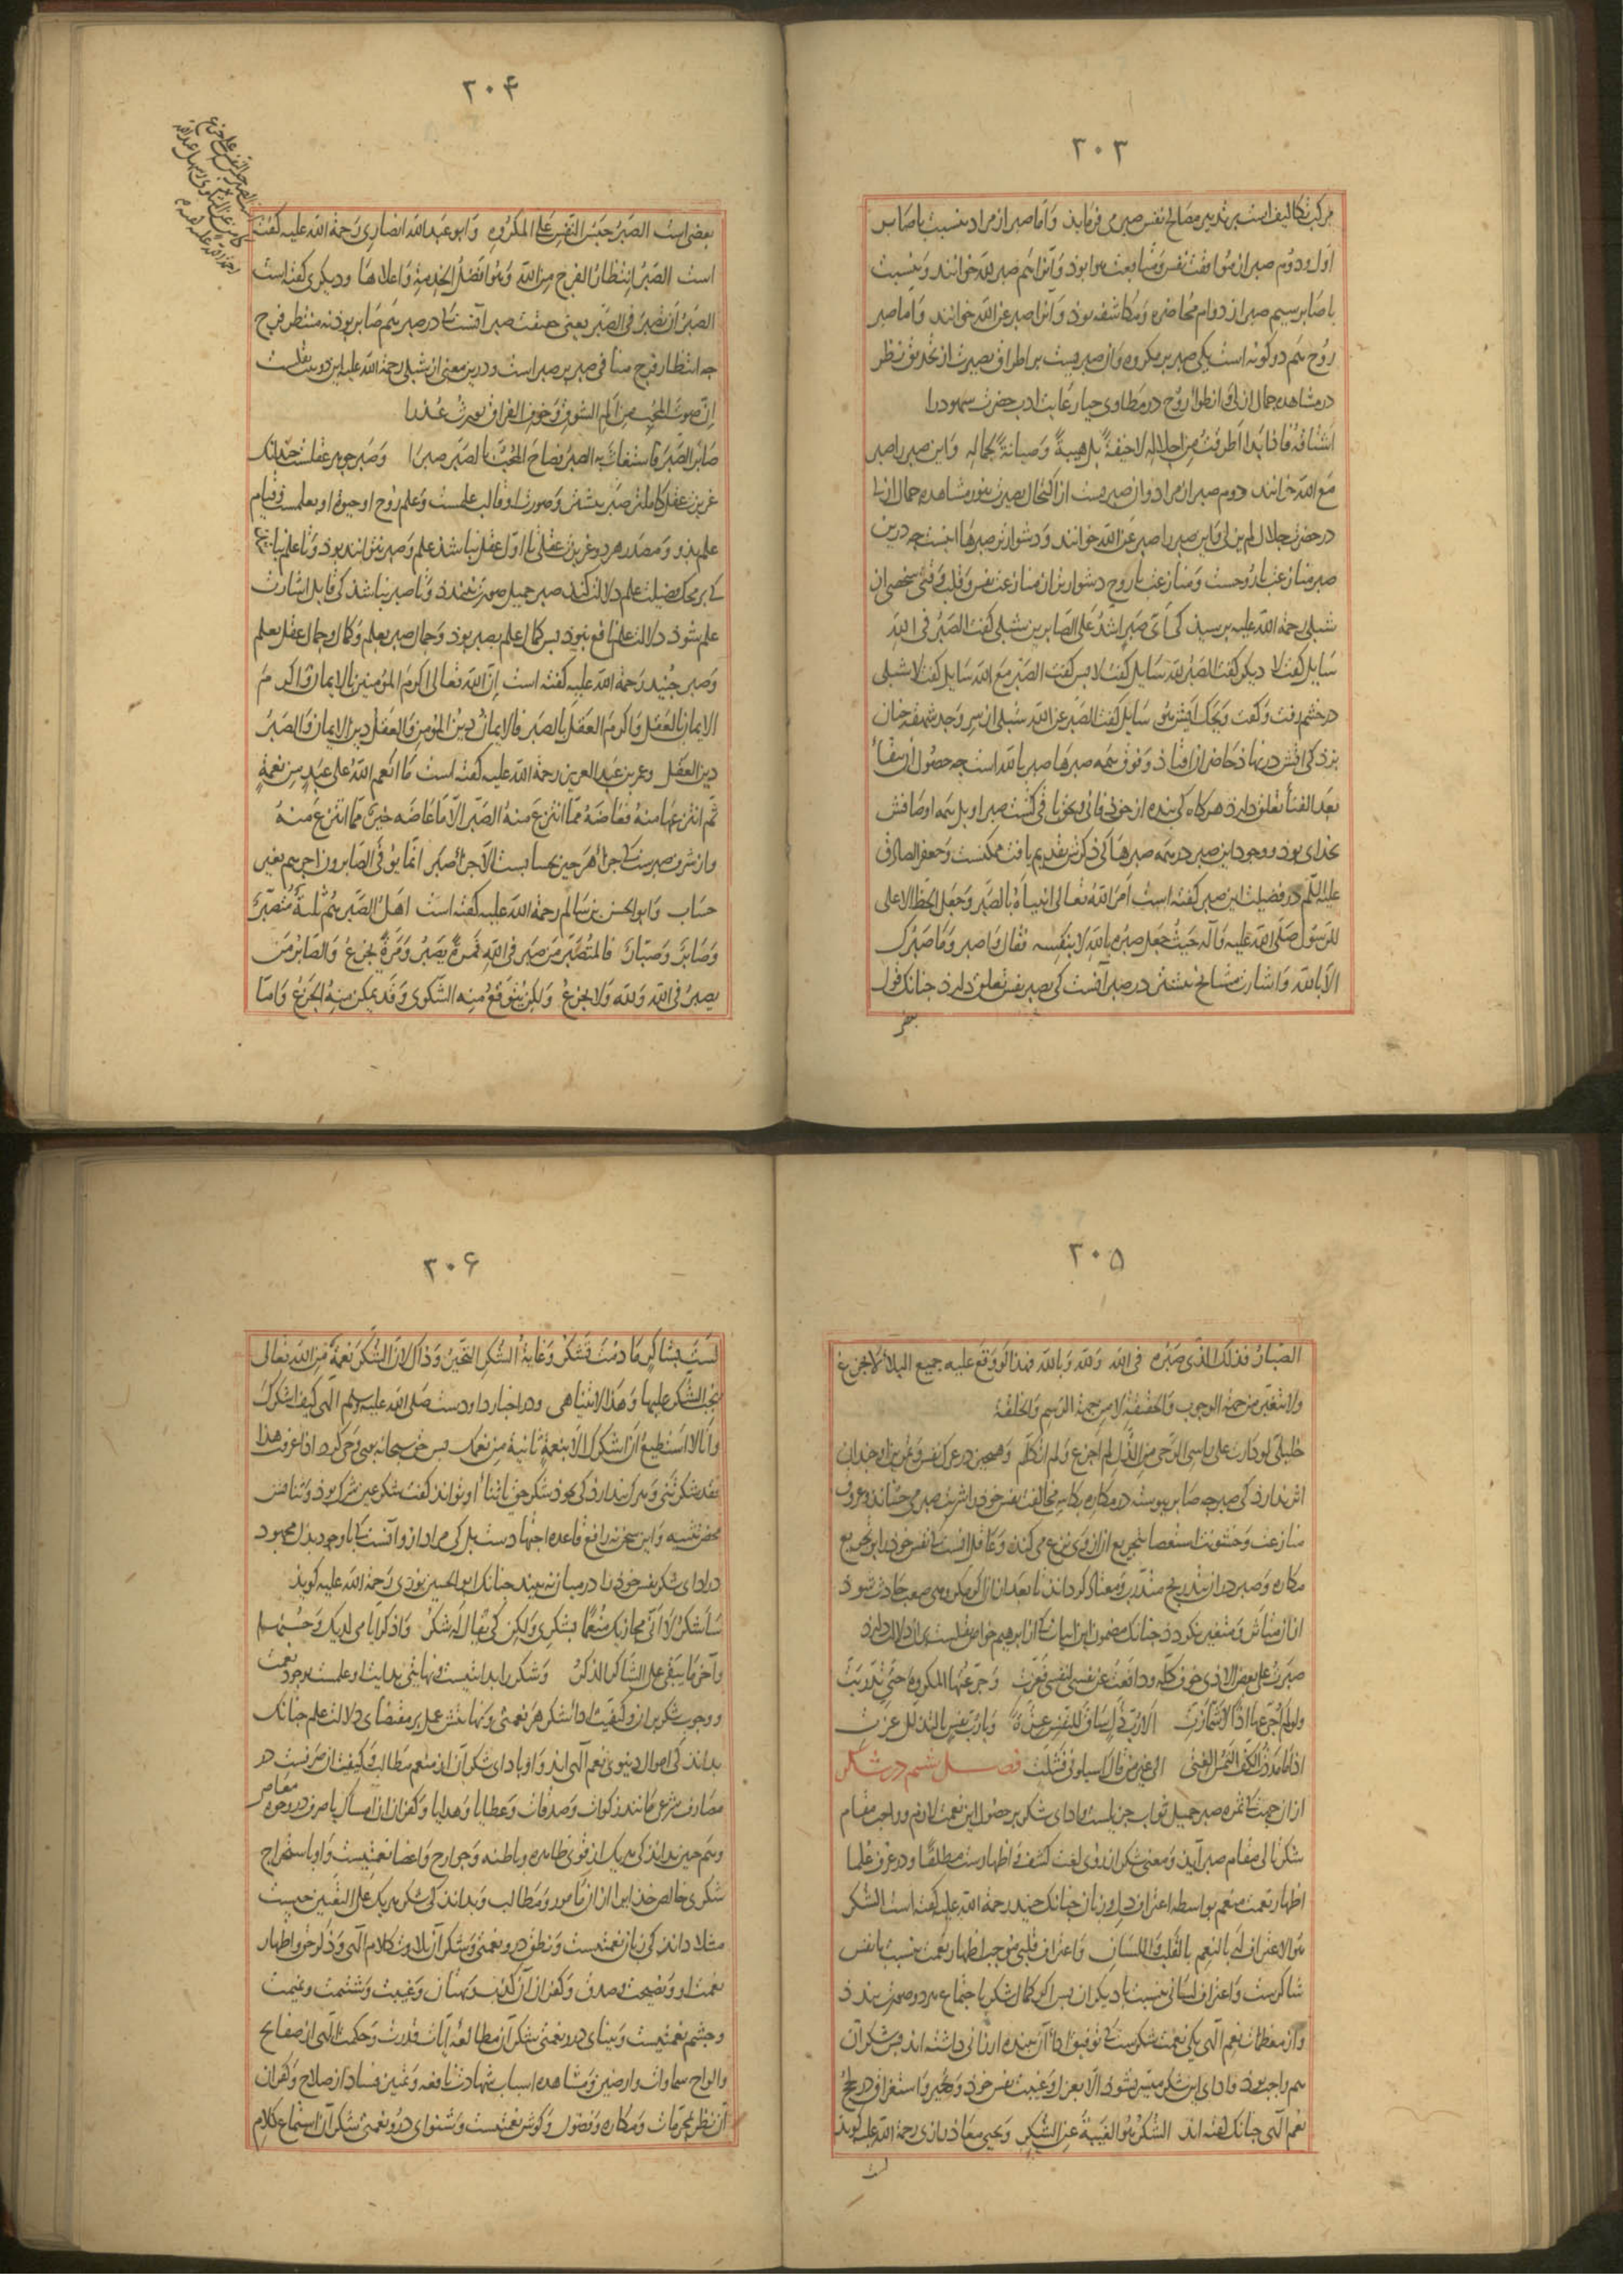 ۳۰۳
مرکب تکالیفست بر تدبیر مصالح نفس صبر می فرماید وَامّا صبر از مراد بنسبت با صابر
اوّل و دوُم صبر از موُافقت نفس وَمتابعت هوا بود وَآنرا هم صبر للّه خوانند وَبنسبت
با صابر سیم صبر از دوام محُاضره وَمُکاشفه بود وَآنرا صبر عن اللّه خوانند وَاما صبر
روُح هَم دو کونه است یکی صبر بر مکروه وَان صبریست بر اطراق بصیرت از تحدیق نظر
در مشاهده جمال ازلی وَانطواء روُح در مطاوی حیا رعایت ادب حضرت شهود را
اَشتاقُهُ فَاذا بَدا اَطرَقتُ مِن اِجلالِه لاخیفةً بَل هیبةً وَصیانةً لجمالِه وَاین صبر را صبر
مَع اللّه خوانند دوم صبر از مراد وان صبریست از اکتحال بصیرت بنور مشاهده جمال ازلی
در حضرت جلال لم یزلی وَاین صبر را صبر عَن اللّه خوانند وَدشوارترین صبرها اینست چه درین
صبر منازعت با روُحست وَمنازعت با روح دشوارتر از منازعت نفس وَقلب وَقتی شخصی از
شبلی رحمة اللّه علیه پرسید کی اَیّ صَبرٍ اشدُّ عَلی الصّابرین شبلی کفت الصّبرُ فی اللّهِ
سَایل کفت لا دیکر کفت الصّبرُ للّه سَایل کفت لا پس کفت الصّبرُ مَع اللّه سَایل کفت لا شبلی
در خشم رفت وَکفت وَیحک اَیش هُو سَایل کفت الصّبر عن اللّه شبلی از سر وَجد شهقهٔ چنان
بزد کی اتش در نهاذ حَاضران افتاذ وَفوق همه صبرها صبر باللّه است چه حصُول آن ببقاءِ
بَعد الفناءِ تعلق دارذ هرکاه کی بنده از خود فانی و بحق باقی کشت صبر او بل همه اوصافش
بخدای بود و وجود این صبر در همه صبرها کی ذکرش تقدیم یافت ممکنست وَجعفر الصّادق
علیه السّلم در فضیلت این صبر کفته است اَمرَ اللّهُ تعالی انبیاءَهُ بالصّبر وَجعَل الحظّ الاعلی
للرّسوُل صَلّی اللّه علیه وَآله حَیث جَعل صبرهُ باللّهِ لا بنَفسِه فقَال وَاصبر وَمَا صَبرُک
الاّ باللّه وَاشارت مشایخ بیشتر در صبر آنست کی بصبر نفس تعلق دارذ چنانک قول
بعضی
۳۰۴
بعضی است الصّبرُ حَبسُ النّفسِ عَلی المکرُوهِ وَابو عَبداللّه انصاری رَحمة اللّه علیه کفته
است الصّبرُ انتظارُ الفرجِ مِن اللّهِ وَهُوَ افضلُ الخِدمةِ وَاعلاهَا ودیکری کفته است
الصّبرُ اَن تصبرَ فی الصّبر یعنی حقیقت صبر آنست کا در صبر هم صَابر بود نه منتظر فرج
چه انتظار فرج منافی صبر بر صبر است و درین معنی از شبلی رحمة اللّه علیه این دو بیت نقلست
اِنّ صوتَ المُحبّ مِن اَلم الشّوقِ وَخوفِ الفِراقِ یورثُ عُذرا
صَابرَ الصّبرَ فاستغاثَ بهِ الصبرُ فصاحَ المُحبّ بالصّبرِ صَبرًا وَصبر جوهر عقلست چندانک
علم بذو وَمصدر هر دو غریزت عقلی تا اوّل عقل نباشذ علم وَصبر نتوانذ بود
علم بشوذ دلالت علم نافع نبود پس کمال علم بصبر بود وَجمال صبر بعلم وَکمال وجمال عقل بعلم
وَصبر جنُید رَحمة اللّه علیه کفته است اِنّ اللّه تعالی اکرم المؤمنین بالایمان وَاکرم
الایمان بالعَقل وَاکرمَ العَقل بالصّبر فالایمانُ زینُ المؤمن وَالعَقلُ زین الایمان وَالصّبرُ
زین العَقل وعمر بن عَبد العزیز رحمة اللّه علیه کفته است مَا اَنعم اللّهُ علی عَبدٍ مِن نعمةٍ
ثمّ انتزعَها منهُ فعَاضَهُ ممّا انتزعَ مِنهُ الصّبر الاّ مَا عَاضَه خیرٌ ممّا انتزعَ مِنهُ
واز شرف صبرست کا جزاء هَر چیز بحسابست الا جزاء صَبر انّما یوفّی الصّابرون اجرهم بغیر
حسَاب وَابو الحسن بن سَالم رحمة اللّه علیه کفته است اهلُ الصّبر هُم ثلثةٌ مُتصبّرٌ
وَصَابرٌ وَصبّارٌ فالمُتصبّر مَن صَبر فی اللّهِ فمرةً یصَبرُ وَمَرّةً یجزعُ وَالصّابرُ مَن
یصبرُ فی اللّه وَللّه وَلا یجزعُ وَلکن یُتوقعُ منه الشّکوی وَقد یمکن منه الجزعُ وَامّا
۳۰۵
الصّبّارُ فذلک الّذی صَبرُه فی اللّه وَللّه وَباللّه فهذا لو وقعَ علیه جمیع البلاءِ لا یجزعُ
ولا یتغیّر من جهة الوجوب والحقیقة لا من جهة الرّسم والخلقة
اثر ندارذ کی صبر چه صابر پیوسته در مکاره بکاس مخالفت نفس خود را شربت صبر می چشاند وَعروق
منازعت وَخشونت استعصا بتجریع از وی نزع می کند وَعاقل آنست کا نفس خود را بتجریع
مکاره وَصبر در ان بتدریج متدرّب وَمعتاد کرداند تا بعَد ازان اکر مکروهی صَعب حَادث شود
ازان متاثر وَمتغیر نکرددَ چنانک مضمون این ابیات کا از ابرهیم خواص نقلست بران دلالت دارذ
صَبرتُ علی بعض الاذی خوفَ کلّه ودافعتُ عن نفسی لنفسی فعَزّتِ وَجرّعتُها المکروهَ حتّی تدرّبت
ولو لم اُجرّعها اذًا لاشمأزّتِ الا رُبّ ذلّ سَاقَ للنّفسِ عزّةً وَیا رُبّ نفسٍ بالتذلل عزّتِ
اذا مَا مدَدتُ الکفّ التمس الغنی الی غیر من قال اسألونی فشلّت فصل ششم در شکر
ازان جهت کا ثمره صبر جمیل ثواب جزیلست وَادای شکر بر حصُول این نعمت لازم وواجب مقام
شکر تالی مقام صبر آید وَمعنی شکر از روی لغت کشف وَاظهارست مطلقًا ودر عرف علما
اظهار نعمت منعم بواسطه اعتراف دل وزبان چنانک جنید رحمة اللّه علیه کفته است الشّکر
هُوَ الاعتراف له بالنِعم بالقلب وَاللسَان وَاعتراف قلبی موجب اظهار نعمت بنسبت با نفس
شاکرست وَاعتراف لسانی بنسبت با دیکران پس اکر کمال شکر با جتماع هر دو صورت بندذ
واز معظمات نعم آلهی یکی نعمت شکرست کا توفیق اداء آن ببنده ارزانی داشته اند پس شکر آن
هم واجب بوذ وادای این شکر میسّر نشود الا بعزل وَغیبت نفس خود وَتحیر واستغراق در بحُر
نعم آلهی چنانک کفته اند الشّکرُ هُوَ الغیبةُ عن الشّکر وَیحیی معَاذ رازی رحمة اللّه علیه کوید
لست
۳۰۶
لستَ بشاکرٍ مَا دمتَ تشکرُ وَغایةُ الشّکرِ التحیّرُ وَذاک لانّ الشّکرَ نعمةٌ من اللّهِ تعالی
یجبُ الشّکر علیها وَهَذا لا یتناهی ودر اخبار داودست صَلّی اللّه علیه وسلم آلهی کیف اشکرکَ
وَانا لا استطیعُ اَن اشکرک الاّ بنعمةٍ ثانیةٍ من نعمک پس حق سبحانه بوی وَحی کرد اذا عرفتَ هذا
فقد شکرتنی وَهر که پندارد کی بخود شکر حق یا ثناء او تواند کفت شکر عین شرک بود وَثناءش
در ادای شکر نفس خود را در میانه نبیند چنانک ابو الحسین نوری رَحمة اللّه علیه کوید
سَاَشکرُ لا انّی مجازیک مُنعمًا بشکری وَلکن کی یُقالَ لهُ شکرُ وَاذکر ایامی لدیک وَحسُنَها
وآخر مَا یبقی علی الشّاکر الذکرُ وَشکر را بدایتیست ونهایتی بدایت او علمست بوجود نعمت
ووجوب شکر بران وکیفیت اداء شکر هر نعمتی وَنهایتش عمل بر مقتضای دلالت علم چنانک
بداند کی اموال دنیوی نعم آلهی اند وَاو بادای شکر آن از منعم مطالب وَکیفیت آن صرفست در
مصارف شرعی مانند زکوات وَصدقات وَعطایا وَهدایا وَکفران آن امساک یا صرف در وجوه معاصی
وهم چنین بداند کی هر یک از قوی ظاهره وباطنه وَجوارح وَاعضا نعمتیست وَاو باستخراج
شکری خالص خدایرا ازان مامور وَمُطالب وَبداند کی شکر هر یک عَلی التعیین چیست
مثلا داند کی زبان نعمتیست وَنطق درو نعمتی وَشکر آن تلاوت کلام آلهی وَذکر حق واظهار
نعمت او وَنصیحت وَصدق وَکفران آن کذب وَبهتان وَغیبت وَشتمت ونمیمت
وچشم نعمتیست وَبینای درو نعمتی شکر آن مطالعهٔ آیات قدرت وَحکمت آلهی از صفایح
والواح سماوات وارضین وَمشاهده اسباب شهادت نافعه وَتمییز فساد از صلاح وَکفران
آن نظر بمحرّمات وَمکاره وَفضول وَکوش نعمتیست وَشنوای درو نعمتی شکر آن استماع کلام